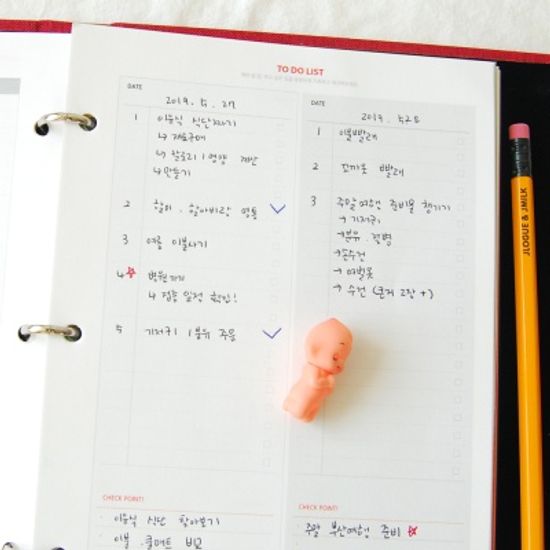 TO DO LIST
DATE
2019. 5. 27
1 이유식 식단짜기
↳ 재료구매
↳ 칼로리 / 영양 계산
↳ 만들기
2 할머니, 할아버지랑 영통
3 여름 이불사기
4 병원가기
↳ 접종 일정 확인!
5 기저귀 / 분유 주문
CHECK POINT!
· 이유식 식단 찾아보기
· 이불
DATE
1 이불빨래
2 꼬까옷 빨래
3 주말여행 준비물 챙기기
→ 기저귀
→ 분유, 젖병
→ 손수건
→ 여벌옷
→ 수건 (큰거 2장 +)
CHECK POINT!
· 주말 부산여행 준비
JLOGUE & JMILK